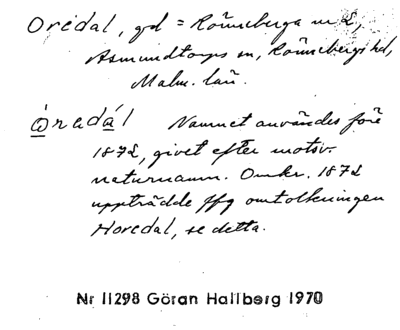 Oredal, gd = Rönneberga nr 2,
Asmundtorps sn, Rönnebergs hd,
Malm. län.
Òredál Namnet användes före
1872, givet efter motsv.
naturnamn. Omkr. 1872
uppträdde ffg omtolkningen
Horedal, se detta.
Nr 11298 Göran Hallberg 1970